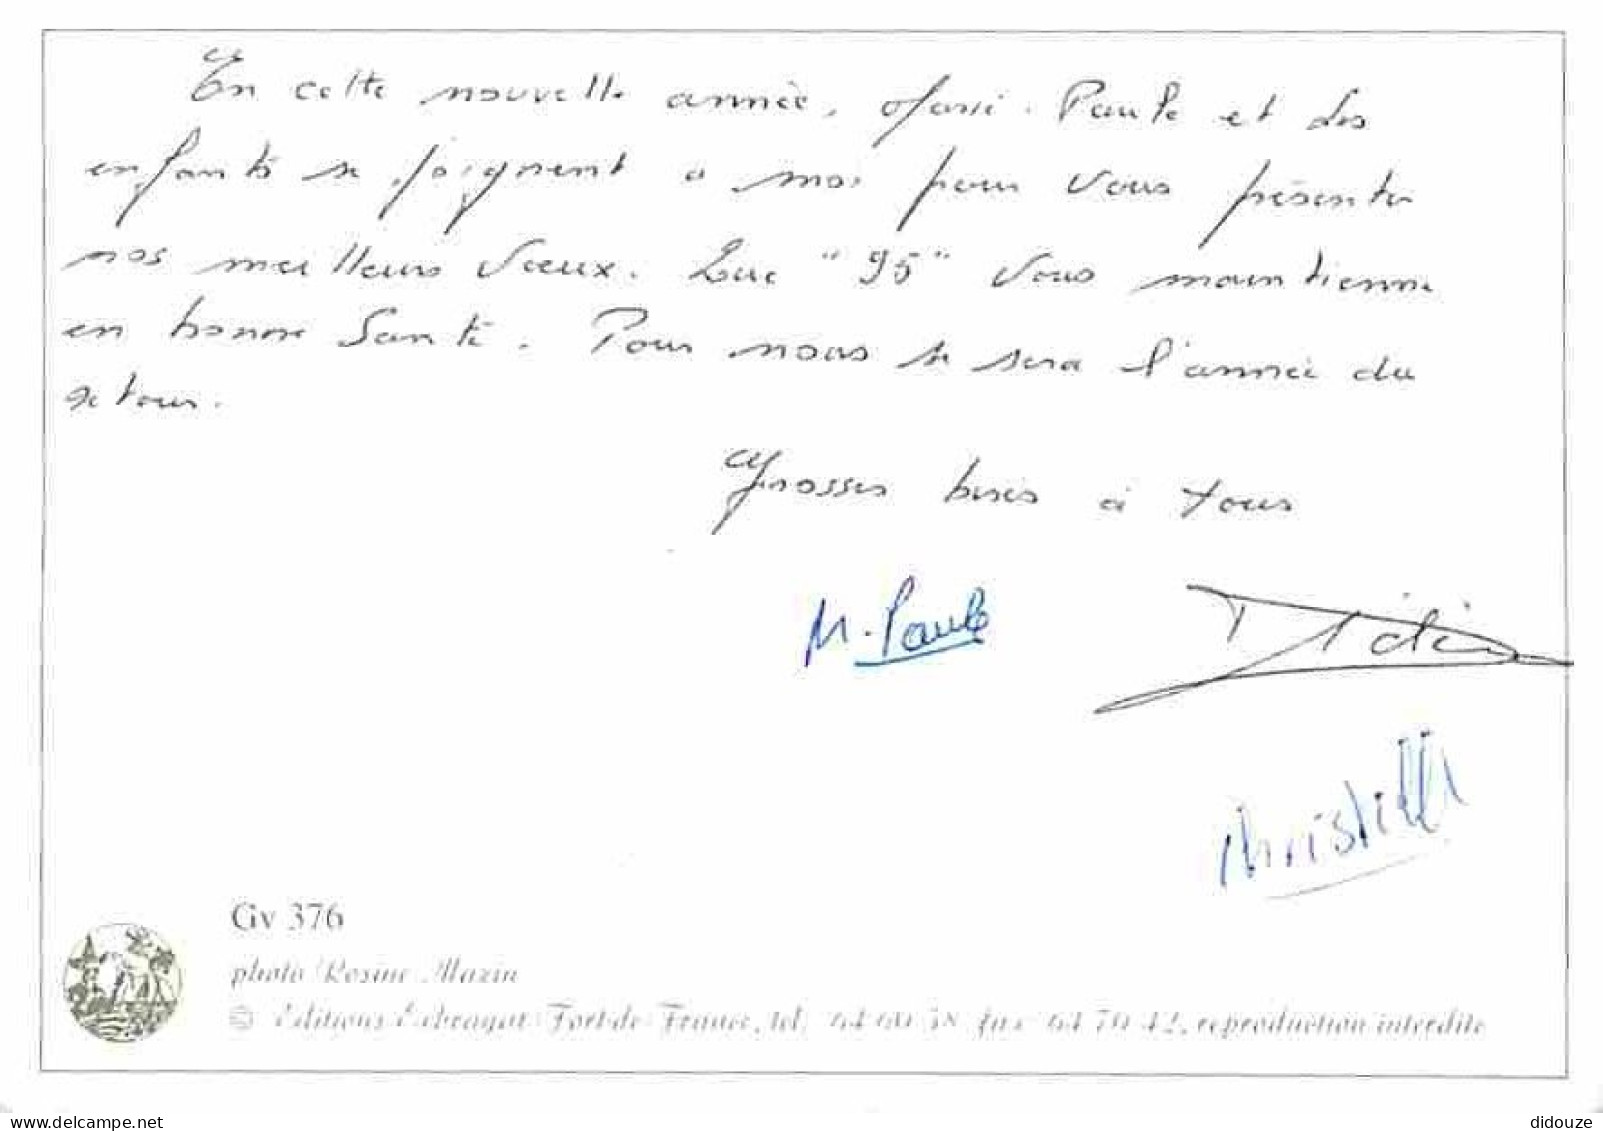 En cette nouvelle année, Marie-Paule et les
enfants se joignent à moi pour vous présenter
nos meilleurs vœux. Que "95" vous maintienne
en bonne santé. Pour nous se sera l'année du
retour.
Grosses bises à tous
M. Paule
Didier
Christelle
Gv 376
photo Rosine Mazin
© Editions Exbrayat Fort-de-France, tel. 64 60 58 fax 64 70 42, reproduction interdite
www.delcampe.net
didouze